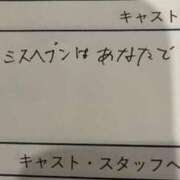 キャスト
ミスヘブンは あなたで
キャスト・スタッフへ